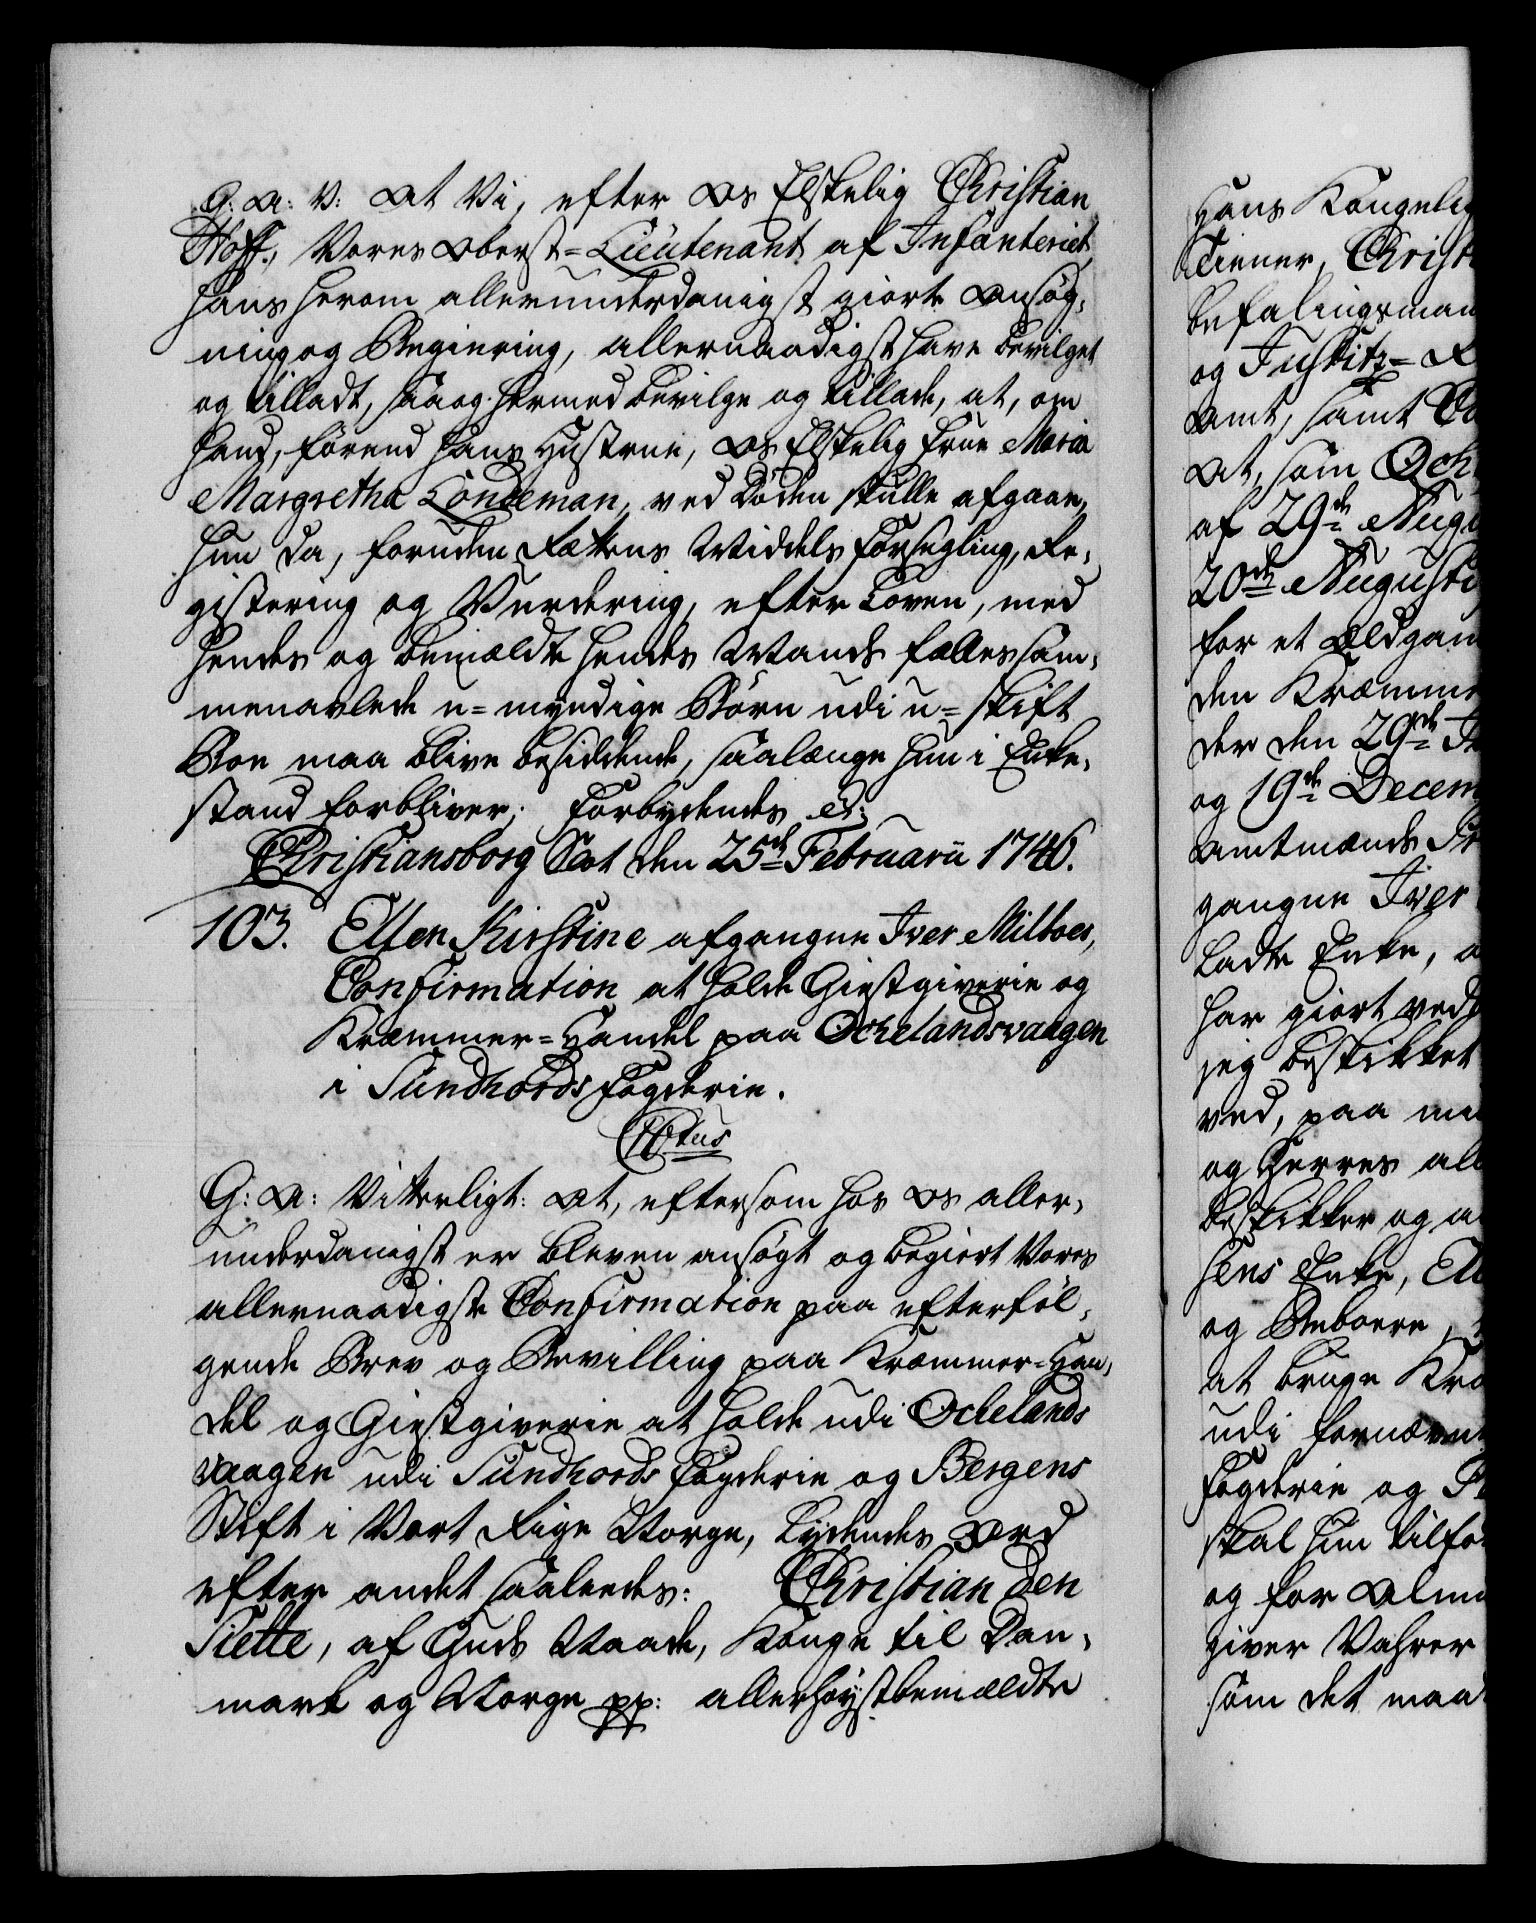 G: A: V: At Vi, efter Os Elskelig Christian
Hoff, Vores Oberst-Lieutenant af Infanteriet,
hans herom allerunderdanigst giorte Ansøg-
ning og Begiering, allernaadigst have bevilget
og tilladt, saa og hermed bevilge og tillade, at, om
hand, førend hans Hustrue, Os Elskelig Frue Maria
Margretha Londeman, ved Døden skulle afgaae,
hun da, foruden Rættens Middels Forsegling, Re-
gistering og Vurdering, efter Loven, med
hendes og bemældte hendes Mands fælles sam-
menavlede u-myndige Børn udi u-skift
Boe maa blive besiddende, saalænge hun i Enke-
stand forbliver. Forbydendes &:
Christiansborg Slot den 25de Februarii 1746.
103. Ellen Kirstine afgangne Iver Miltoes,
Confirmation at holde Giestgiverie og
Kræmmer-Handel paa Ochelandsvaagen
i Sundhords Fogderie.
C 6tus
G: A: Vitterligt: At, eftersom hos Os aller-
underdanigst er bleven ansøgt og begiert Vores
allernaadigste Confirmation paa efterføl-
gende Brev og Bevilling paa Kræmmer-Han-
del og Giestgiverie at holde udi Ochelands
vaagen udi Sundhords Fogderie og Bergens
Stift i Vort Rige Norge, lydendes Ord
efter andet saaledes: Christian den
Siette, af Guds Naade, Konge til Dan-
mark og Norge pp: allerhøystbemældte
Hans Kongelig
Tiener, Christ
Befalingsman
og Justitz-R
Amt, samt
At, som Och
af 29de Aug
20de Augusti
for et Ældgam
den Kræmme
der den 29de
og 19de Decem
Amtmands
gangne Iver
Ladte Enke, a
har giort ved
jeg beskikket
ved, paa
og Herres all
beskikker og
sens Enke, El
og Beboere,
at bruge Kræ
udi fornævnt
Fogderie og
skal hun tilfor
og for Alm
giver Vahrer
som det maa